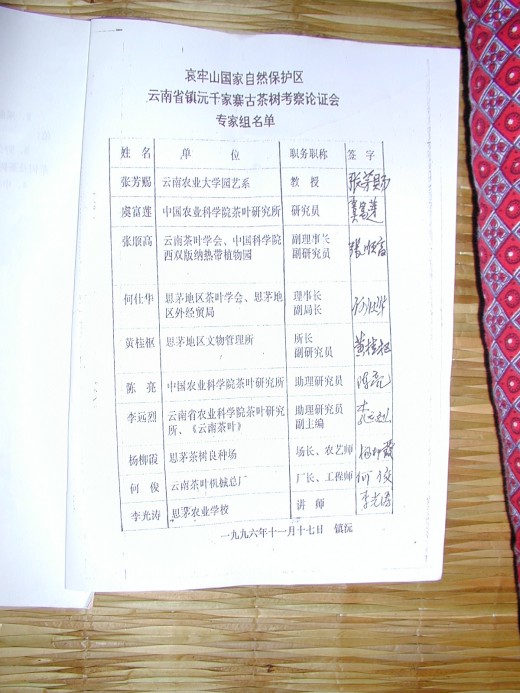 哀牢山国家自然保护区
云南省镇沅千家寨古茶树考察论证会
专家组名单
姓 名 单 位 职务职称 签 字
张芳赐 云南农业大学园艺系 教 授 张芳赐
虞富莲 中国农业科学院茶叶研究所 研究员 虞富莲
张顺高 云南茶叶学会、中国科学院 副理事长 张顺高
西双版纳热带植物园 副研究员
何仕华 思茅地区茶叶学会、思茅地 理事长 何仕华
区外经贸局 副局长
黄桂枢 思茅地区文物管理所 所长 黄桂枢
副研究员
陈 亮 中国农业科学院茶叶研究所 助理研究员 陈亮
李远烈 云南省农业科学院茶叶研究 助理研究员 李远烈
所、《云南茶叶》 副主编
杨柳霞 思茅茶树良种场 场长、农艺师 杨柳霞
何 俊 云南茶叶机械总厂 厂长、工程师 何俊
李光涛 思茅农业学校 讲 师 李光涛
一九九六年十一月十七日 镇沅